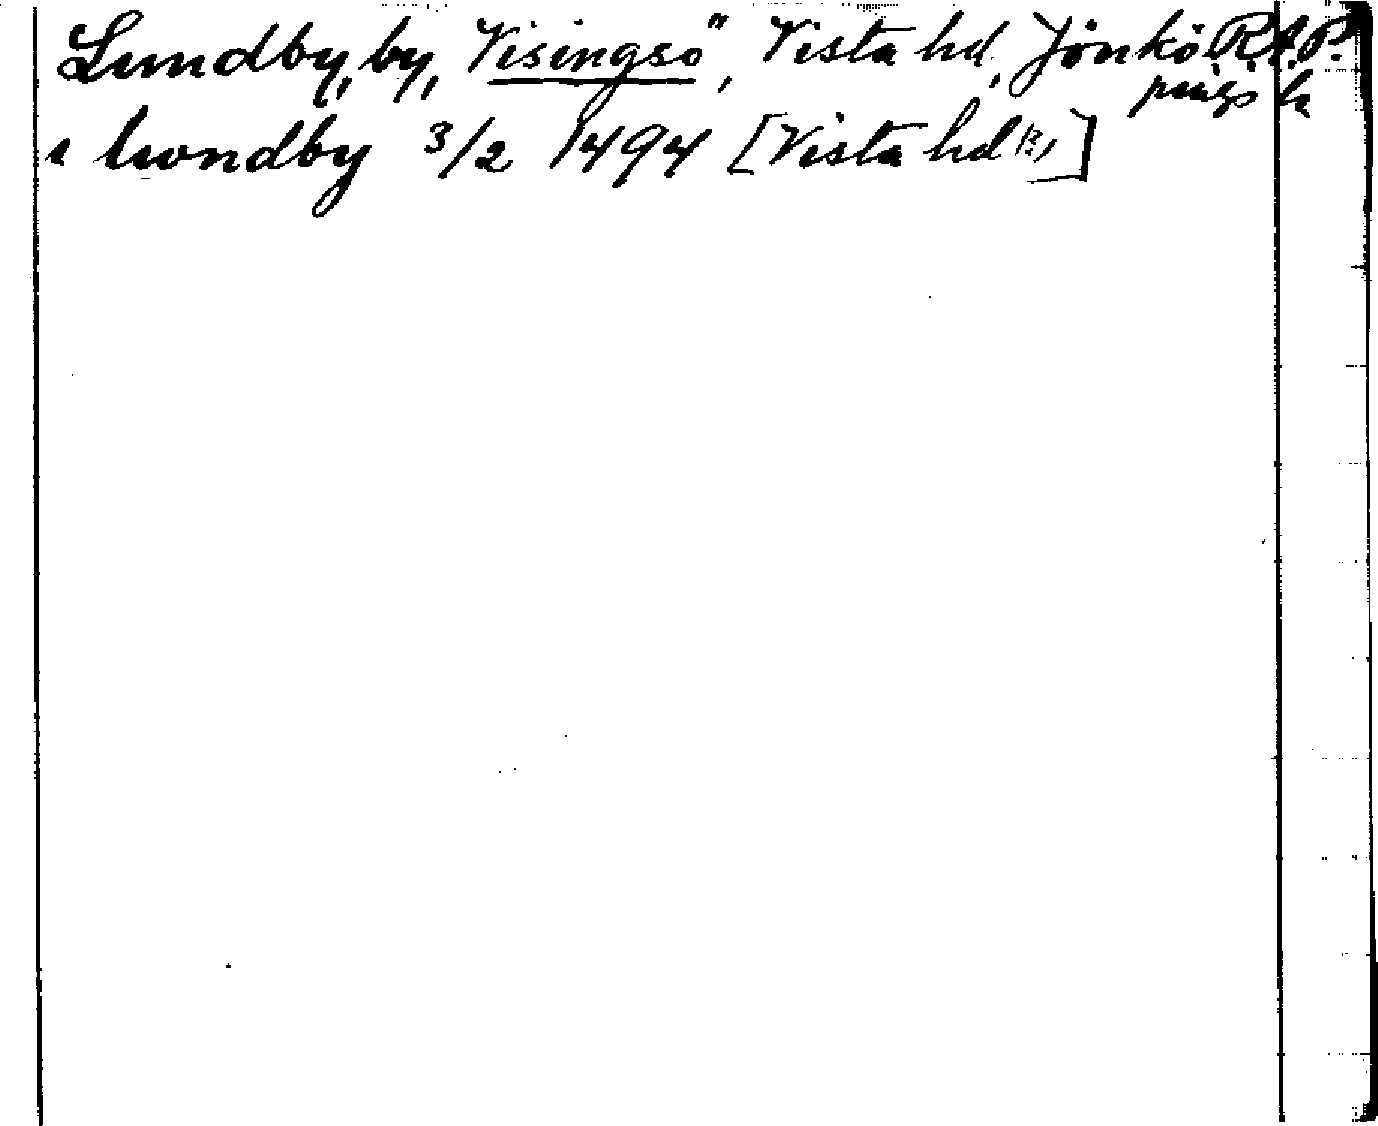 Lundby, by, Visingsö, Vista hd, Jönkö R.A.P.
pings l
i lwondby 3/2 1494 [Vista hd]